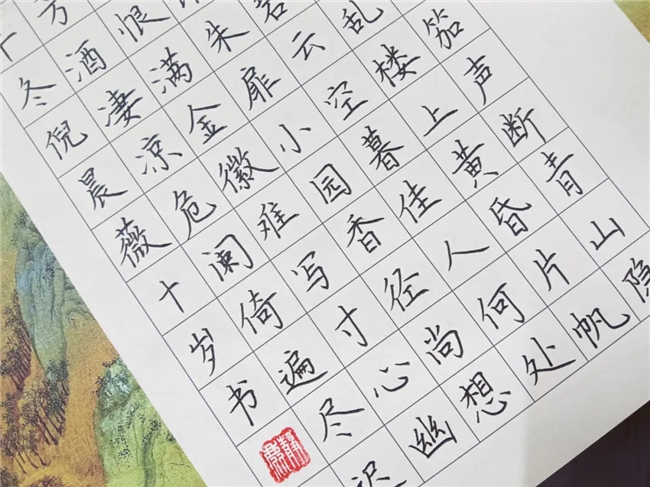 笳声断青山隐
乱楼上黄昏片帆
云空暮佳人何处
朱扉小园香径尚想
恨满金徽难写寸心幽
酒凄凉危阑倚遍尽识
冬倪晨薇十岁书